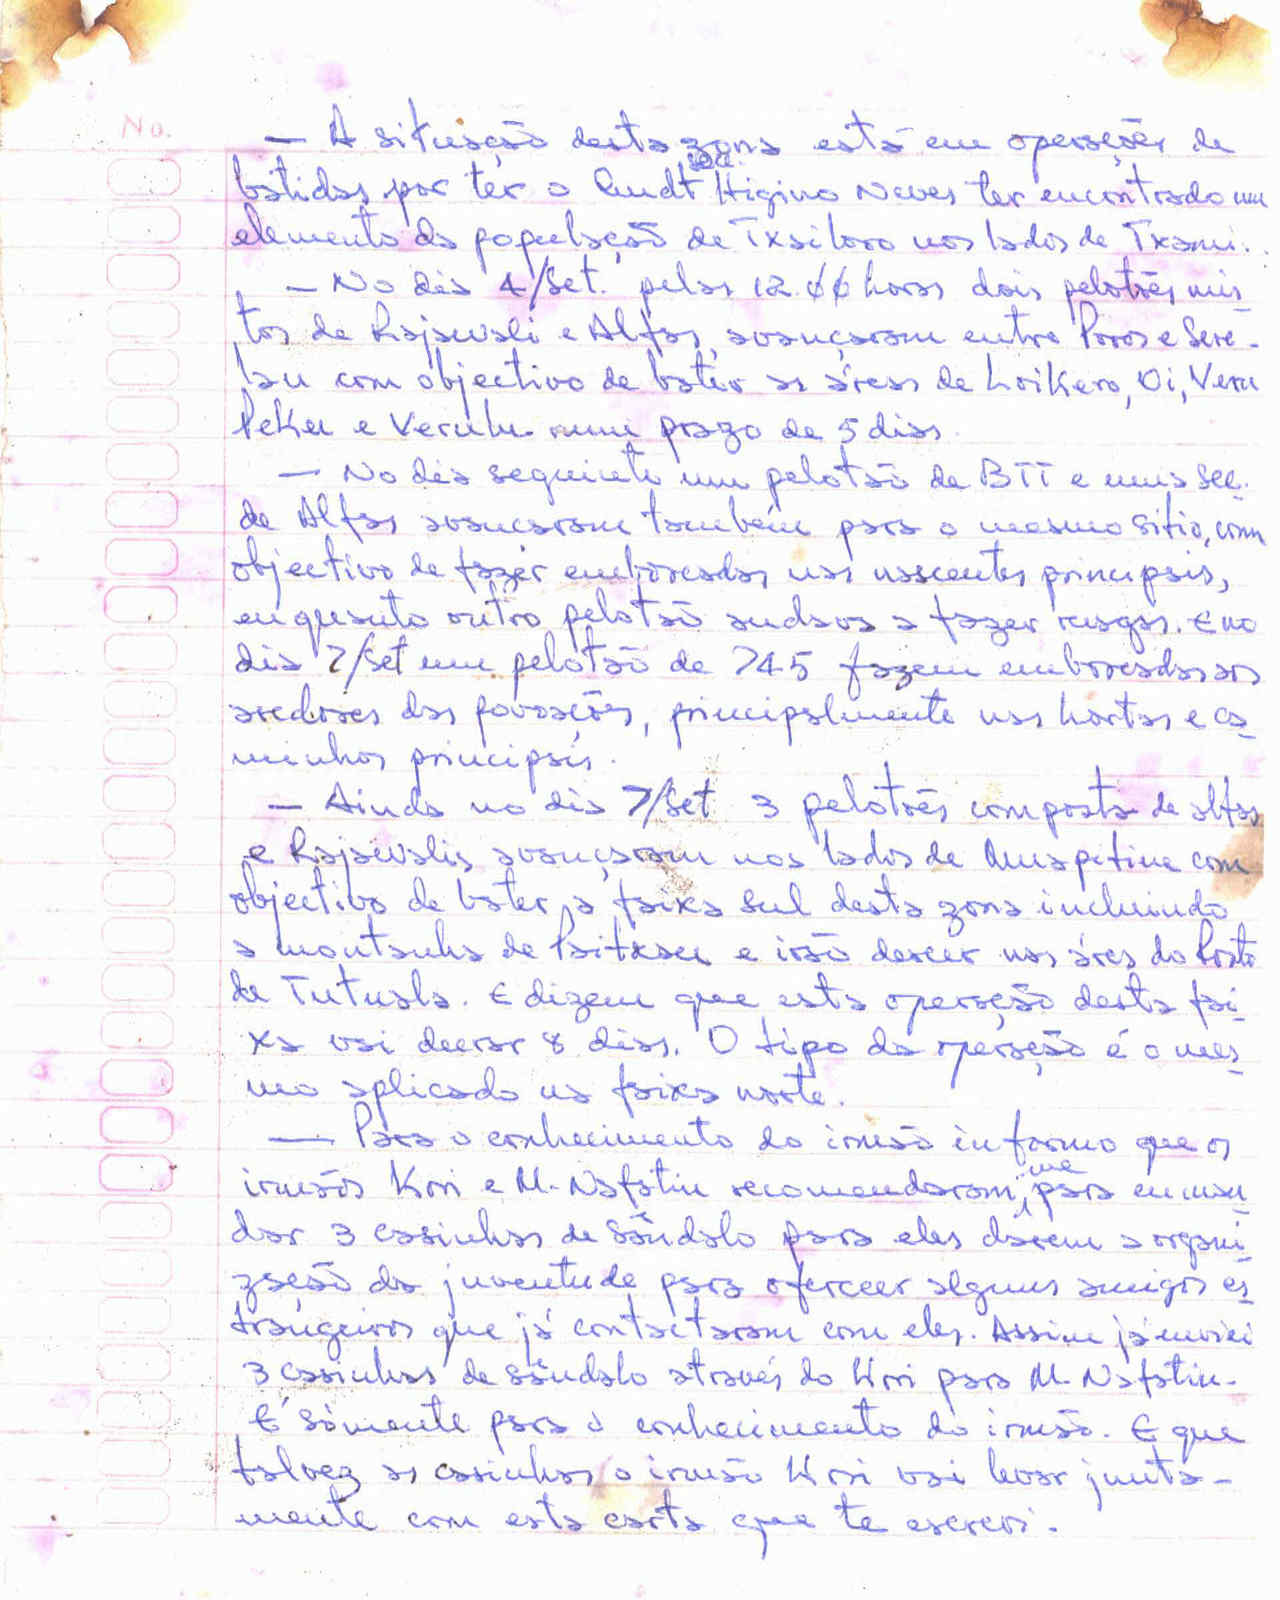 No.
— A situação desta zona está em operações de
batidas por ter o Cmdt Higino Neves ter encontrado um
elemento da população de Txailoro nos lados de Txami.
— No dia 4/Set. pelas 12.00 horas dois pelotões mis
tos de Rajawali e Alfas, avançaram entre Poros e Sere-
lau com objectivo de bater as áreas de Loikero, Oi, Veru
Peku e Verulu num prazo de 5 dias.
— No dia seguinte um pelotão de BTT e uma Sec.
de Alfas avançaram também para o mesmo sitio, com
objectivo de fazer emboscadas nas nascentes principais,
enquanto outro pelotão andava a fazer rusgas. E no
dia 7/Set um pelotão de 745 fazem emboscadas aos
aredores das povoações, principalmente nas hortas e ca
minhos principais.
— Ainda no dia 7/Set 3 pelotões composta de alfas
e Rajawalis avançaram nos lados de com
objectivo de bater a faixa sul desta zona incluindo
a montanha de Paitxau e irão descer nas área do Posto
de Tutuala. E dizem que esta operação desta fai
xa vai decorer 8 dias. O tipo da operação é o mes
mo aplicado na faixa norte.
— Para o conhecimento do irmão informo que os
irmãos Koni e M. Nafatin recomendaram, me para encomen
dar 3 casinhas de sândalo para eles darem a organi
zação da juventude para oferecer alguns amigos es
trangeiros que já contactaram com eles. Assim já enviei
3 casinhas de sândalo através do Koni para M. Nafatin.
É sòmente para o conhecimento do irmão. E que
talvez as casinhas o irmão Koni vai levar junta-
mente com esta carta que te escrevi.